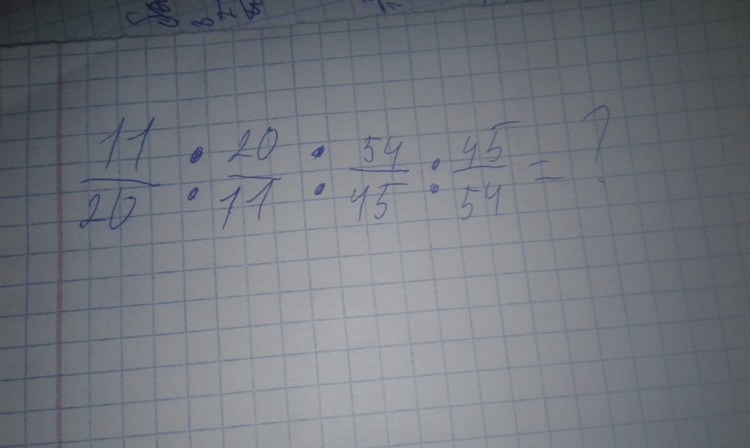 11/20 : 20/11 : 54/45 : 45/54 = ?